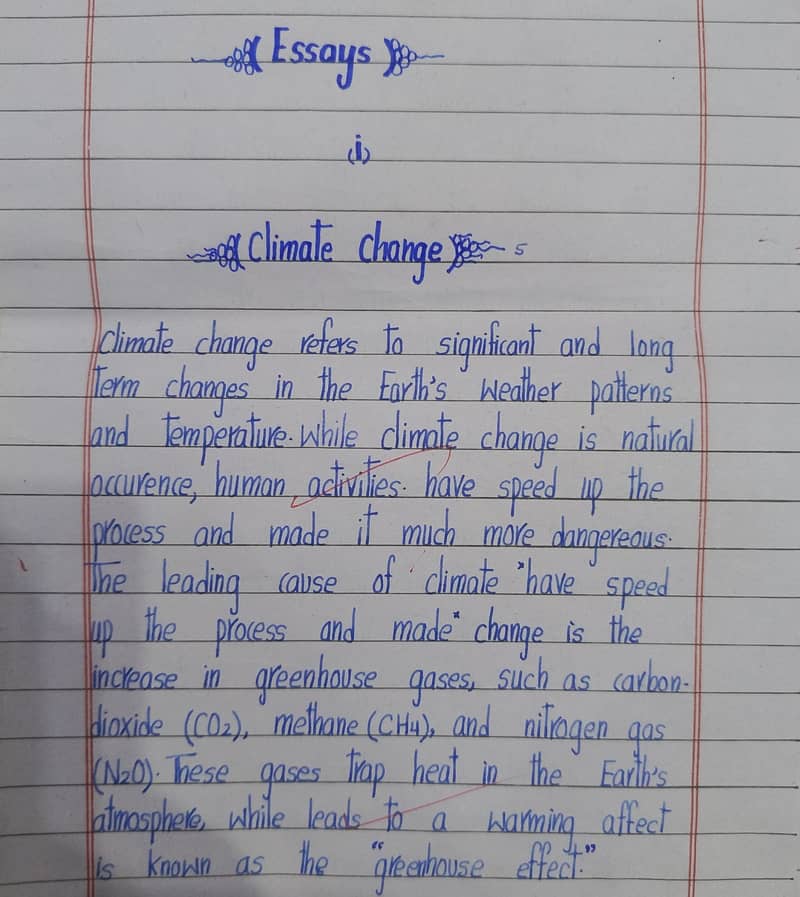 Essays
(i)
Climate change
Climate change refers to significant and long
term changes in the Earth's weather patterns
and temperature. While climate change is natural
occurence, human activities. have speed up the
process and made it much more dangereous.
The leading cause of climate "have speed
up the process and made" change is the
increase in greenhouse gases, such as carbon-
dioxide (CO2), methane (CH4), and nitrogen gas
(N2O). These gases trap heat in the Earth's
atmosphere, while leads to a warming affect
is known as the "greenhouse effect."